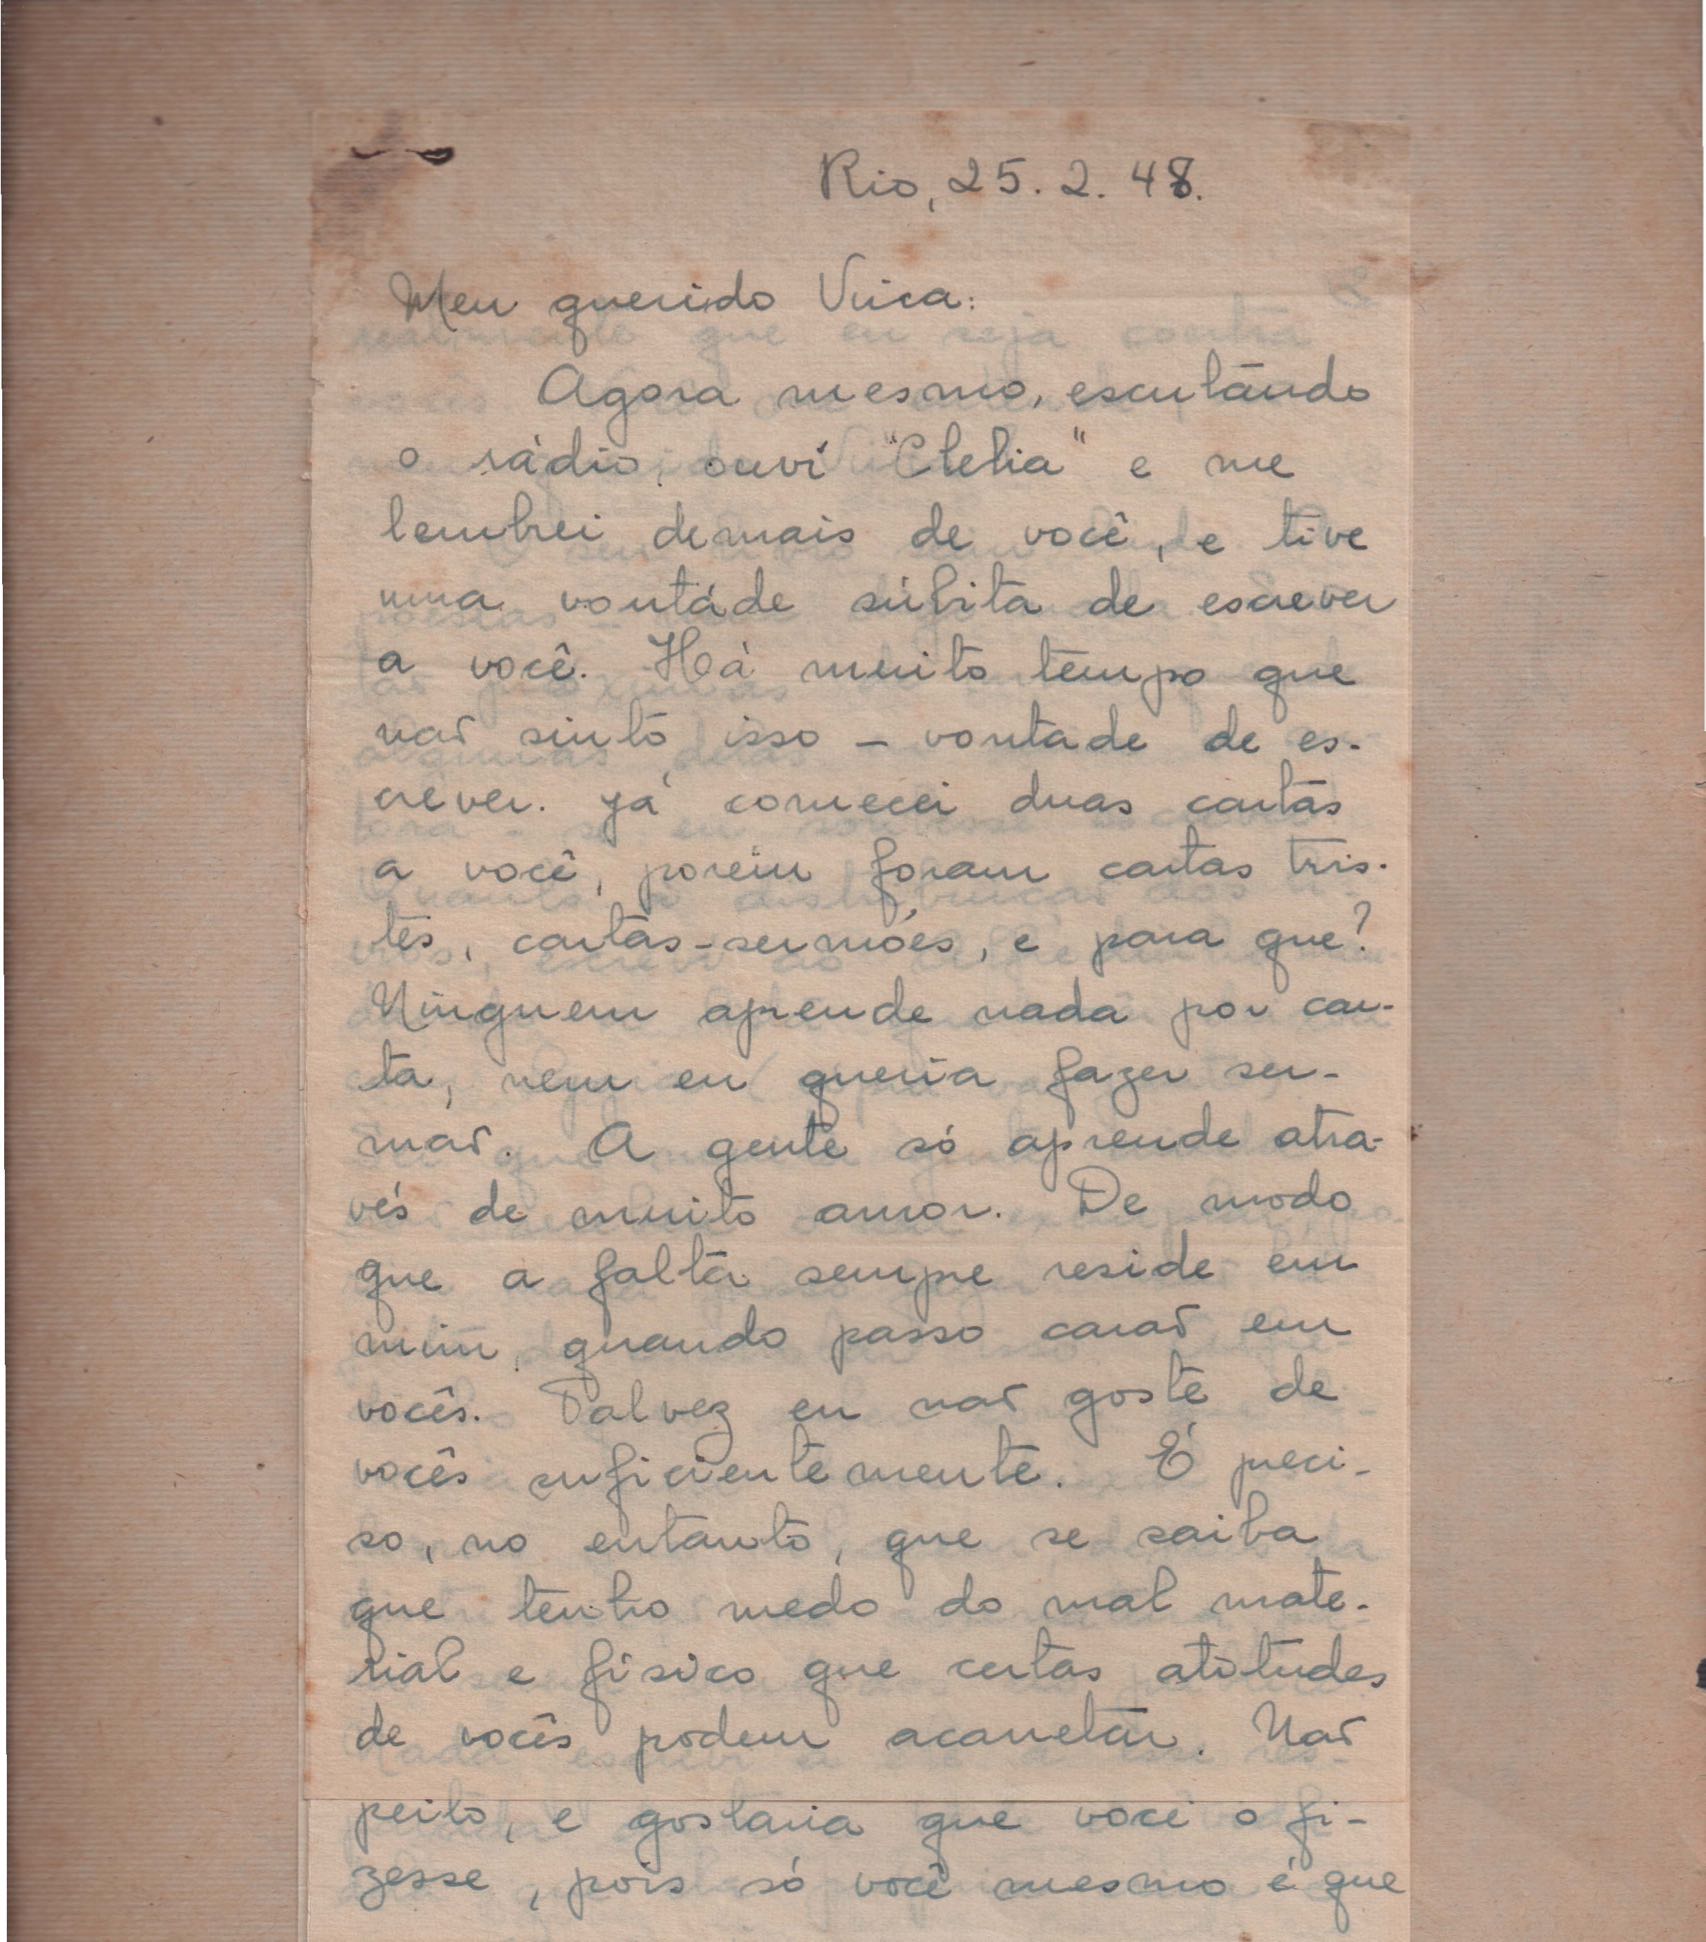 Rio, 25. 2. 48.
Meu querido Vuica:
Agora mesmo, escutando
o rádio, ouvi "Clelia" e me
lembrei demais de você, e tive
uma vontade súbita de escrever
a você. Há muito tempo que
não sinto isso – vontade de es-
crever. Já comecei duas cartas
a você, porém foram cartas tris-
tes, cartas-sermões, e para que?
Ninguem aprende nada por car-
ta, nem eu queria fazer ser-
mão. A gente só aprende atra-
vés de muito amor. De modo
que a falta sempre reside em
mim, quando passo carão em
vocês. Talvez eu não goste de
vocês suficientemente. É preci-
so, no entanto, que se saiba
que tenho medo do mal mate-
rial e físico que certas atitudes
de vocês podem acarretar. Não
peito, e gostaria que você o fi-
zesse, pois só você mesmo é que